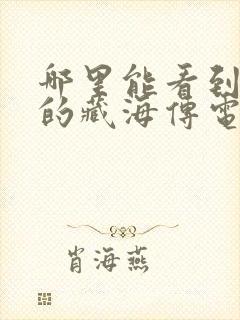 哪里能看到
的藏海傳電
肖海燕